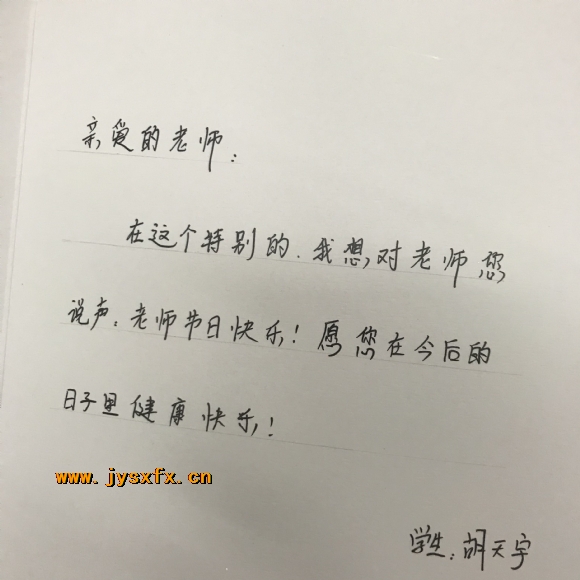 亲爱的老师:
在这个特别的.我想对老师您
说声:老师节日快乐!愿您在今后的
日子里健康快乐!
www.jysxfx.cn
学生:胡天宇